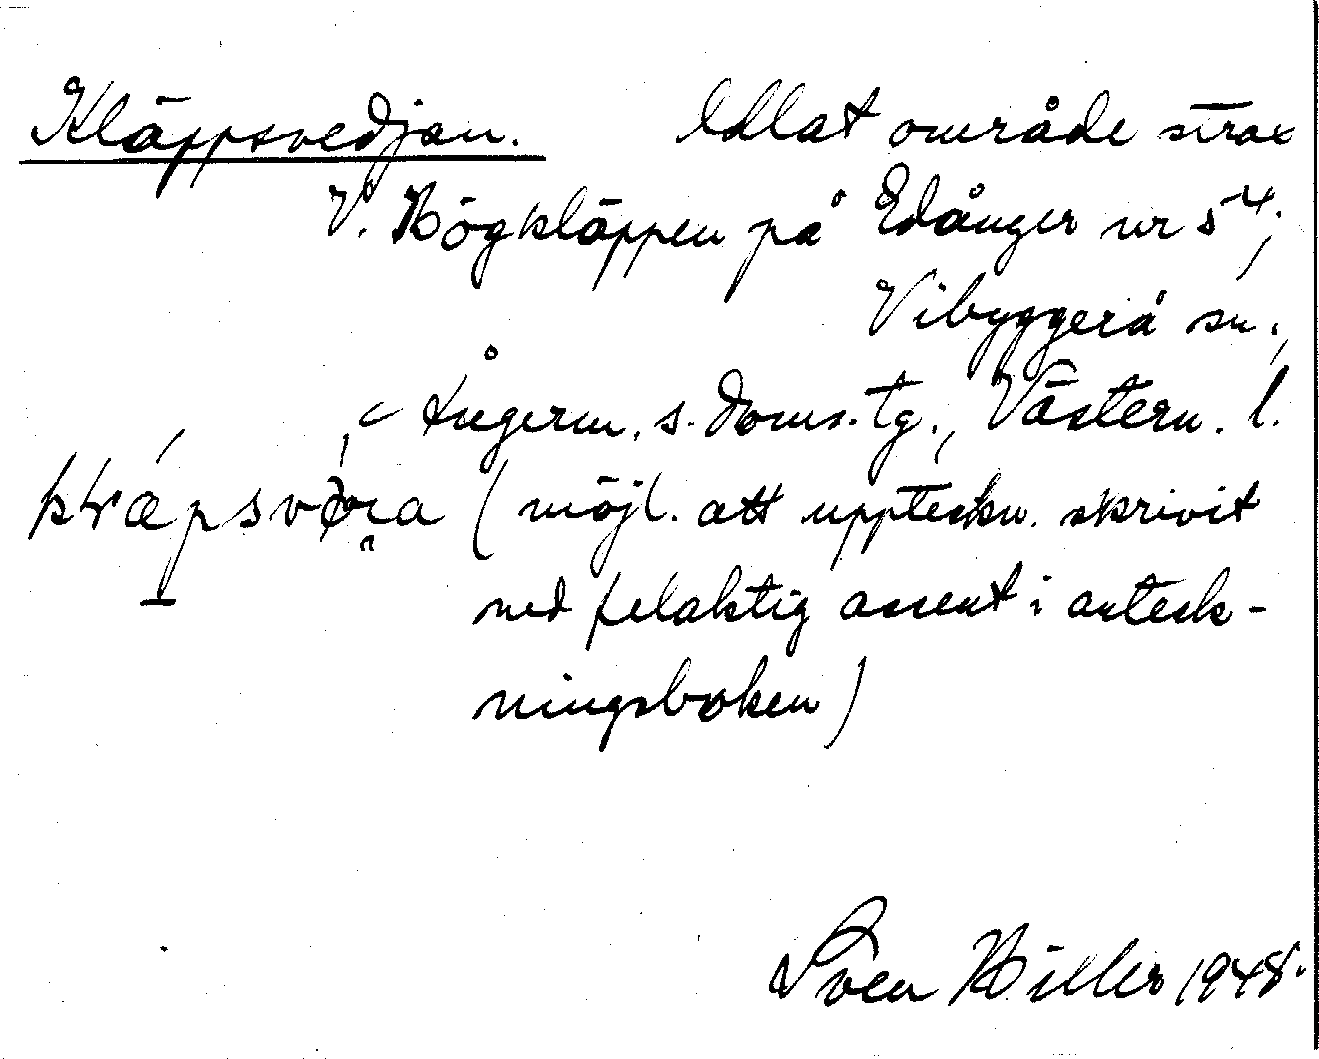 Kläppsvedjan. Odlat område strax
V. Högkläppen på Edånger nr 5⁴;
Vibyggerå sn.,
Ångerm. s. doms. tg., Västern. l.
(möjl. att uppteckn. skrivit
ned felaktig accent i anteck-
ningsboken)
Sven Hiller 1948.